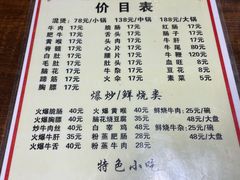 价目表
混煲：78元/小锅 138元/中锅 188元/大锅
牛肉 17元 脆肠 17元 红肠 17元
肥牛 17元 舌头 17元 肝子 17元
黄喉 17元 心片 17元 牛尾 80元
脊髓 17元 腰片 17元 牛鞭 120元
白肚 17元 肚片 17元 血旺 8元
毛肚 17元 牛头 17元 豆腐 6元
胸膘 17元 脑花 17元 素菜 5元
爆炒/鲜烧类
火爆脆肠 40元 火爆黄喉 40元 鲜烧牛肉：25元/碗
火爆胸膘 40元 脑花烧豆腐 35元 48元/大盘
炒牛肉丝 40元 白宰鸡 48元 鲜烧牛杂：25元/碗
火爆牛肝 35元 粉蒸肥肠 28元 48元/大盘
火爆牛舌 40元 粉蒸牛肉 28元
特色小吃